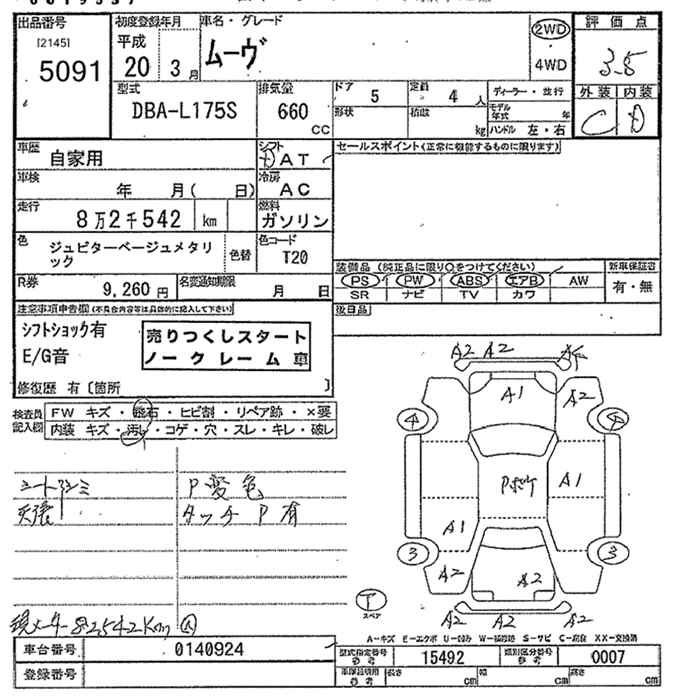 出品番号 初度登録年月 車名・グレード 2WD 評価点
[2145] 平成 ムーヴ 3.5
5091 20 3月 4WD
外装 内装
型式 排気量 ドア 5 定員 4人 ディーラー・並行 C D
DBA-L175S 660 CC 形状 積載 kg モデル年式 年
ハンドル 左・右
車歴 自家用 シフト AT セールスポイント(正常に機能するものに限ります)
車検 年 月( 日) 冷房 AC
走行 8万2千542 km 燃料 ガソリン
色 ジュピターベージュメタリック 色替 色コード T20
装備品(純正品に限り○をつけてください) 新車保証書
R券 9,260円 名変通知期限 月 日 PS PW ABS エアB AW 有・無
SR ナビ TV カワ
注意事項申告欄(不具合内容等は具体的に記入して下さい) 後日品
シフトショック有 売りつくしスタート
E/G音 ノークレーム車
修復歴 有〔箇所 〕
検査員記入欄 FW キズ・飛石・ヒビ割・リペア跡・×要
内装 キズ・汚れ・コゲ・穴・スレ・キレ・破レ
A2 A2
A1 A2
4 4
シート P変色
天張 タッチP有
Pボケ A1
A1
3 3
A2 A2
T スペア
A2 A2 A2
現メーター82542Km A
A-キズ E-エクボ U-凹み W-補修跡 S-サビ C-腐食 XX-交換済
車台番号 0140924 型式指定番号 参考 15492 類別区分番号 参考 0007
登録番号 車庫証明用 参考 長さ cm 幅 cm 高さ cm